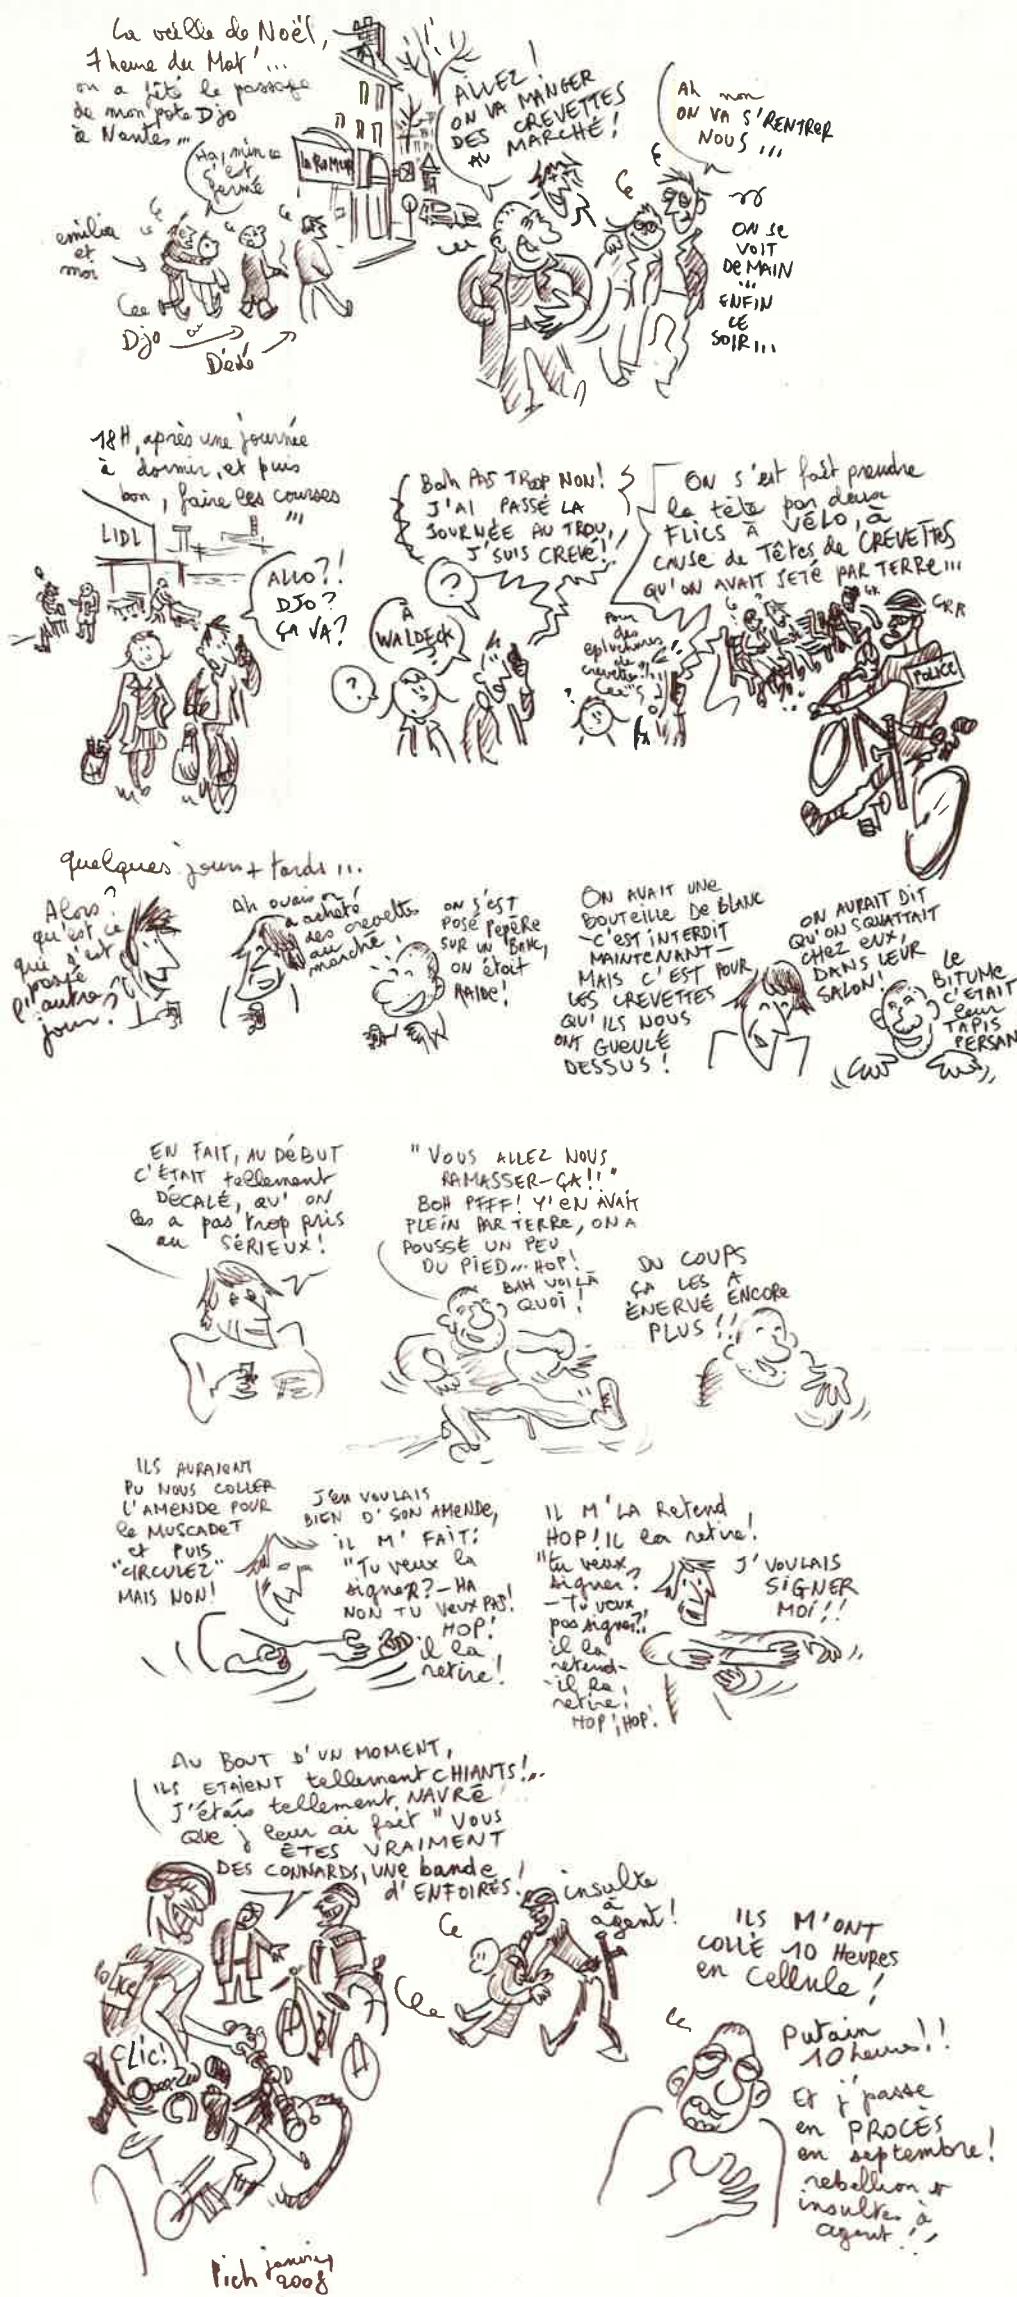 La veille de Noël,
7 heure du Mat'...
on a fêté le passage
de mon pote Djo
à Nantes...
Ha, mince
c'est
fermé
LA ROMUR
emilia
et
moi
Djo
Dédé
ALLEZ!
ON VA MANGER
DES CREVETTES
AU MARCHÉ!
Ah non
ON VA S'RENTRER
NOUS...
ON SE
VOIT
DEMAIN
...
ENFIN
CE
SOIR...
18H, après une journée
à dormir, et puis
bon, faire les courses
...
LIDL
ALLO?!
DJO?
ÇA VA?
BOH PAS TROP NON!
J'AI PASSÉ LA
JOURNÉE AU TROU,
J'SUIS CREVÉ!
?
À
WALDECK
?
ON s'est fait prendre
la tête par deux
FLICS À VÉLO, à
CAUSE de TÊTES de CREVETTES
QU'ON AVAIT JETÉ PAR TERRE...
Pour
des
épluchures
de
crevettes?!
?
POLICE
quelques jours + tards...
Alors?
qu'est ce
qui s'est
passé
l'autre
jour?
Ah ouais on
a acheté
des crevettes
au
marché,
ON S'EST
POSÉ PEPÈRE
SUR UN BANC,
ON était
RAIDE!
ON AVAIT UNE
BOUTEILLE DE BLANC
-C'EST INTERDIT
MAINTENANT-
MAIS C'EST POUR
LES CREVETTES
QU'ILS NOUS
ONT GUEULÉ
DESSUS!
ON AURAIT DIT
QU'ON SQUATTAIT
CHEZ EUX,
DANS LEUR
SALON!
LE
BITUME
C'ÉTAIT
leur
TAPIS
PERSAN
EN FAIT, AU DÉBUT
C'ÉTAIT tellement
DÉCALÉ, QU'ON
les a pas trop pris
au SÉRIEUX!
"VOUS ALLEZ NOUS
RAMASSER-ÇA!!"
BOH PFFF! Y'EN AVAIT
PLEIN PAR TERRE, ON A
POUSSÉ UN PEU
DU PIED... HOP!
BAH VOILÀ
QUOI!
DU COUPS
ÇA LES A
ÉNERVÉ ENCORE
PLUS!!
ILS AURAIENT
PU NOUS COLLER
L'AMENDE POUR
le MUSCADET
et PUIS
"CIRCULEZ"
MAIS NON!
J'en VOULAIS
BIEN D'SON AMENDE,
IL M'FAIT:
"Tu veux la
signer? - HA
NON TU VEUX PAS!
HOP!
il la
retire!
IL M'LA Retend
HOP! IL la retire!
"tu veux
signer?
- Tu veux
pas signer?!
il la
retend-
-il la
retire!
HOP! HOP!
J'VOULAIS
SIGNER
MOI!!
AU BOUT D'UN MOMENT,
ILS ETAIENT tellement CHIANTS!...
J'étais tellement NAVRÉ
QUE j'leur ai fait "VOUS
ÊTES VRAIMENT
DES CONNARDS, UNE bande
d'ENFOIRÉS!
insulte
à
agent!
POLICE
CLIC!
ILS M'ONT
COLLÉ 10 HEURES
en cellule!
Putain
10 heures!!
Et j'passe
en PROCÈS
en septembre!
rebellion et
insultes à
agent!!
Pich janvier
2008